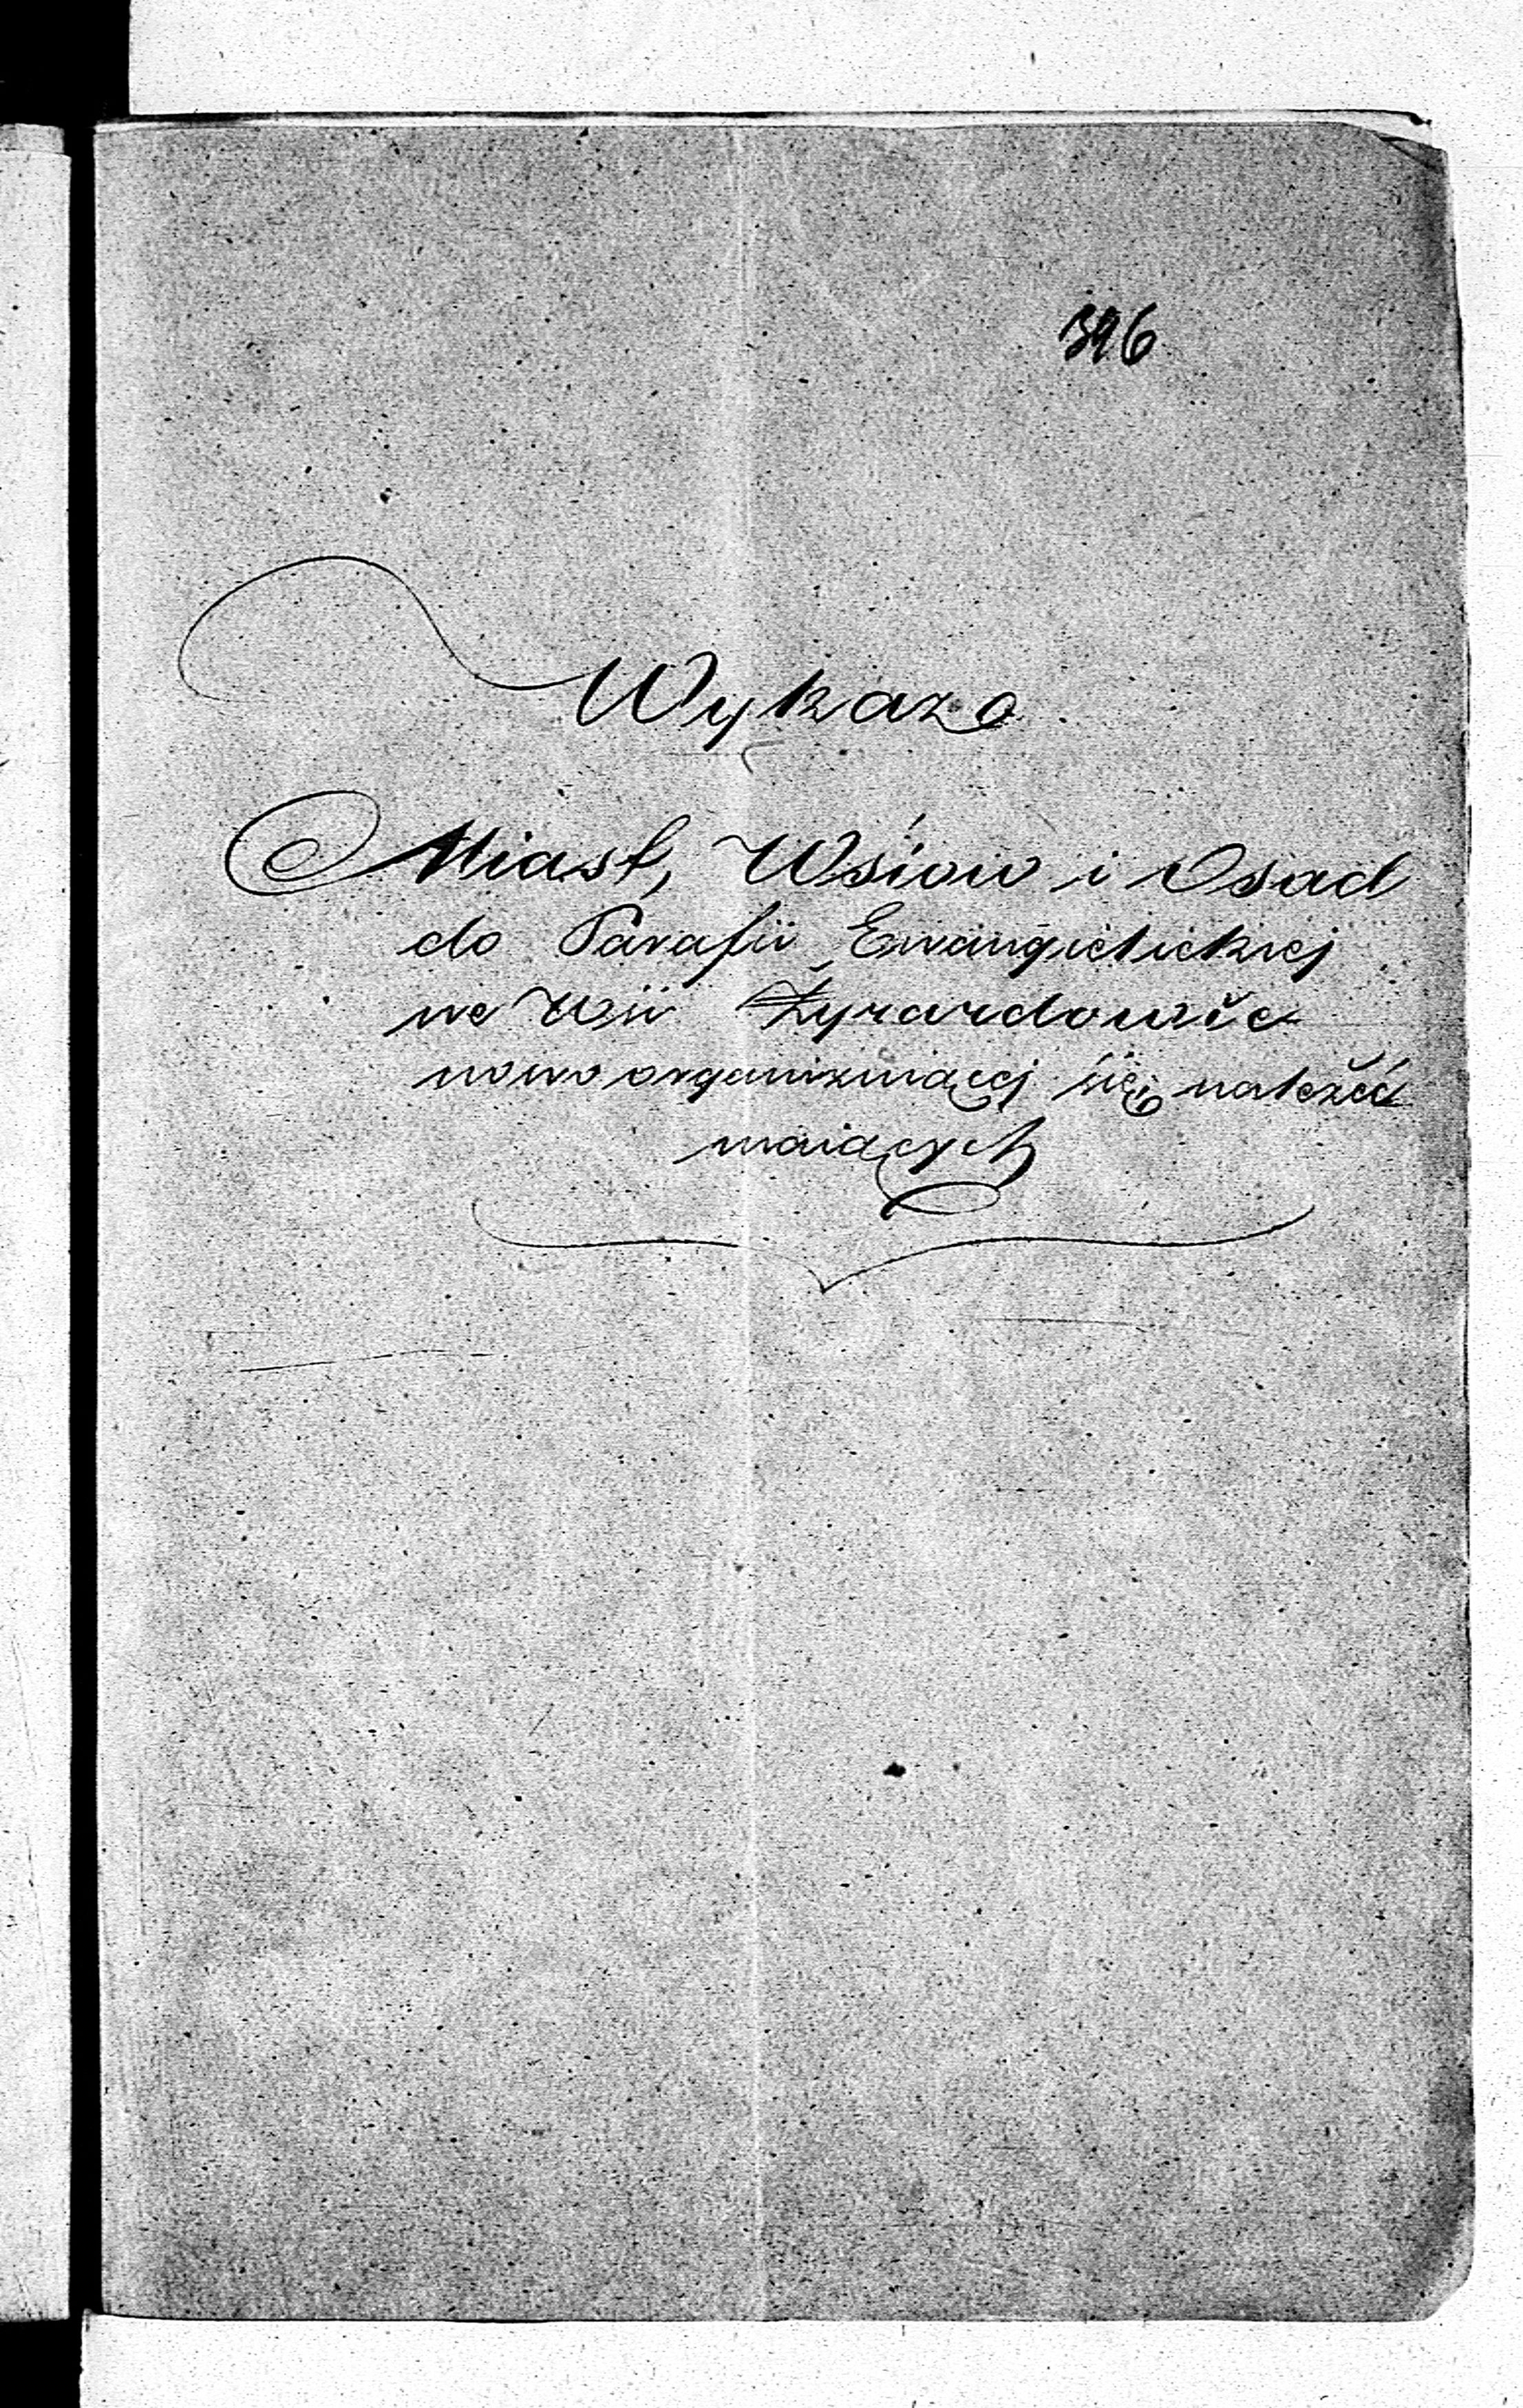 396
Wykaz
Miast, Wsiów i Osad
do Parafii Ewangielickiej
we Wsii Żyrardowie
nowo organizuiącej się należeć
maiących